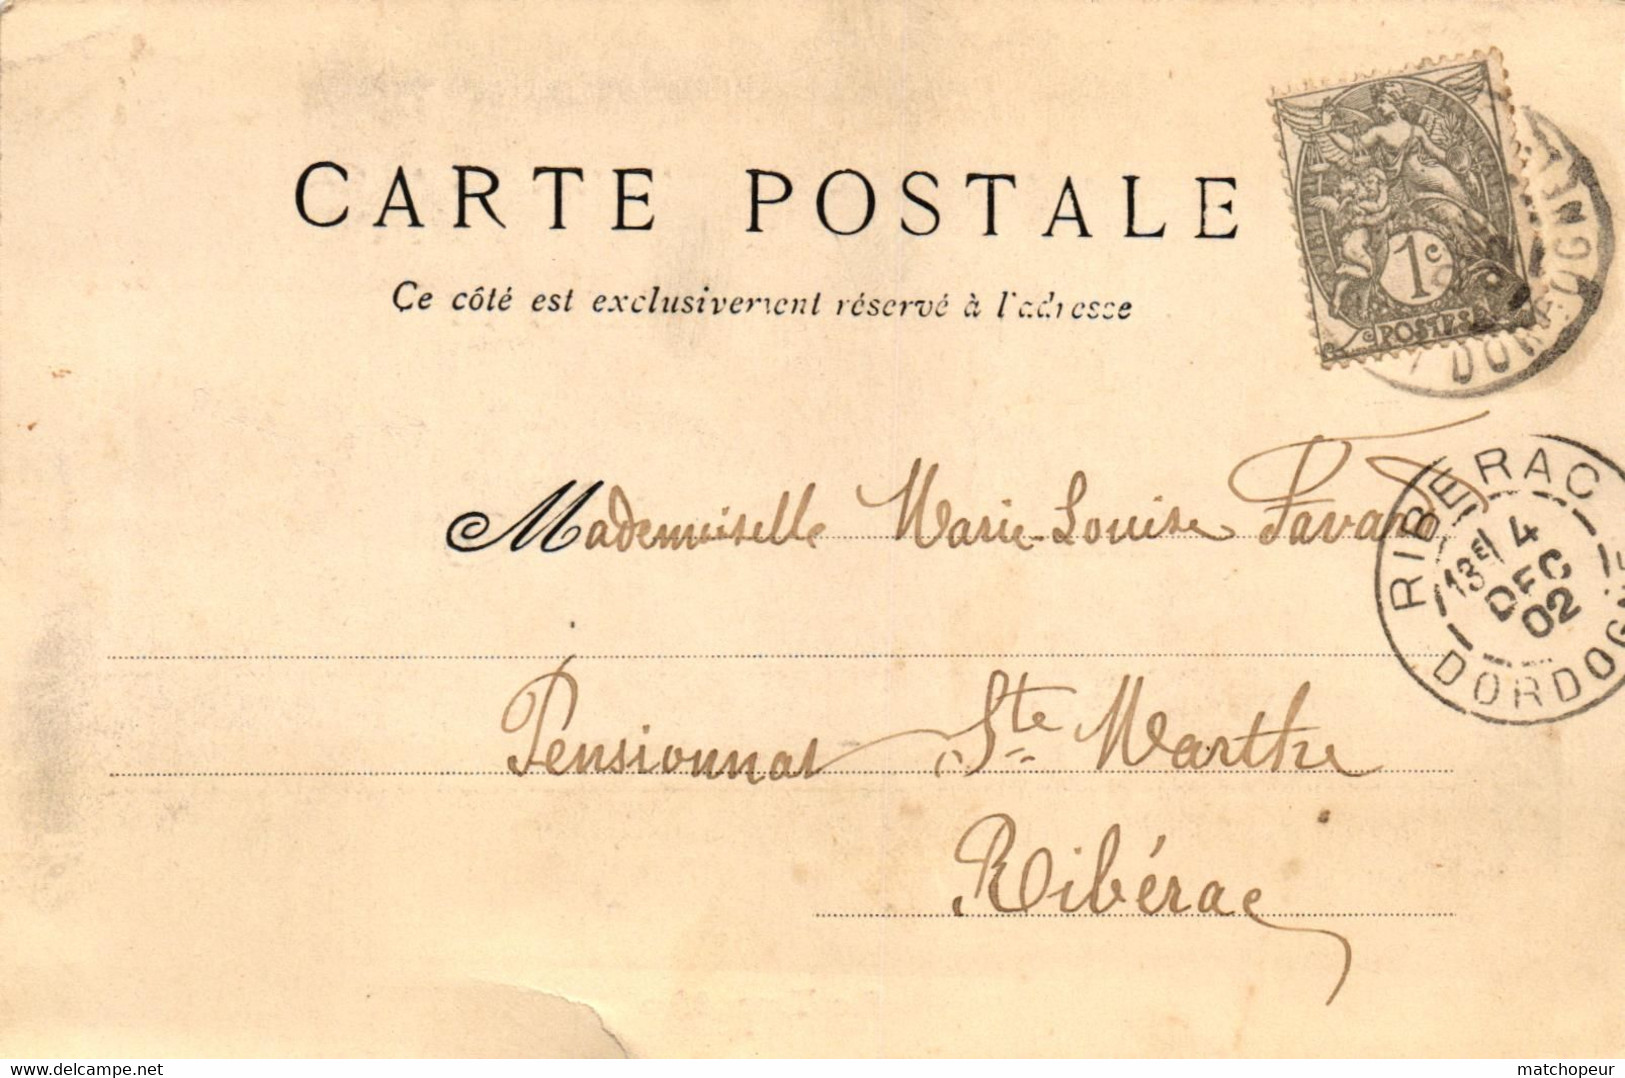 CARTE POSTALE
Ce côté est exclusivement réservé à l'adresse
1c
POSTES
DORDOGNE
Mademoiselle Marie-Louise Favard
RIBERAC
13E 4
DEC
02
DORDOGNE
Pensionnat Ste Marthe
Ribérac
delcampe.net
matchopeur